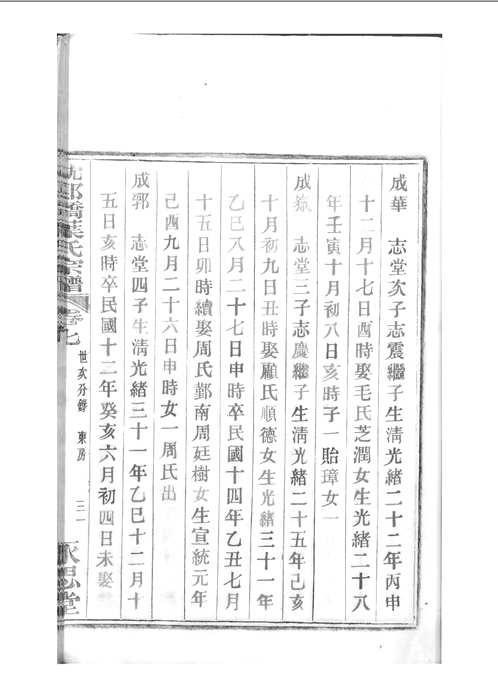 成華　志堂次子志震繼子生淸光緒二十二年丙申
十二月十七日酉時娶毛氏芝潤女生光緒二十八
年壬寅十月初八日亥時子一貽璋女一
成　志堂三子志慶繼子生淸光緒二十五年己亥
十月初九日丑時娶顧氏順德女生光緒三十一年
乙巳八月二十七日申時卒民國十四年乙丑七月
十五日卯時續娶周氏鄞南周廷樹女生宣統元年
己酉九月二十六日申時女一周氏出
成郭　志堂四子生淸光緒三十一年乙巳十二月十
五日亥時卒民國十二年癸亥六月初四日未娶
郎橋葉氏宗譜
卷七
世次分錄　東房
永思堂